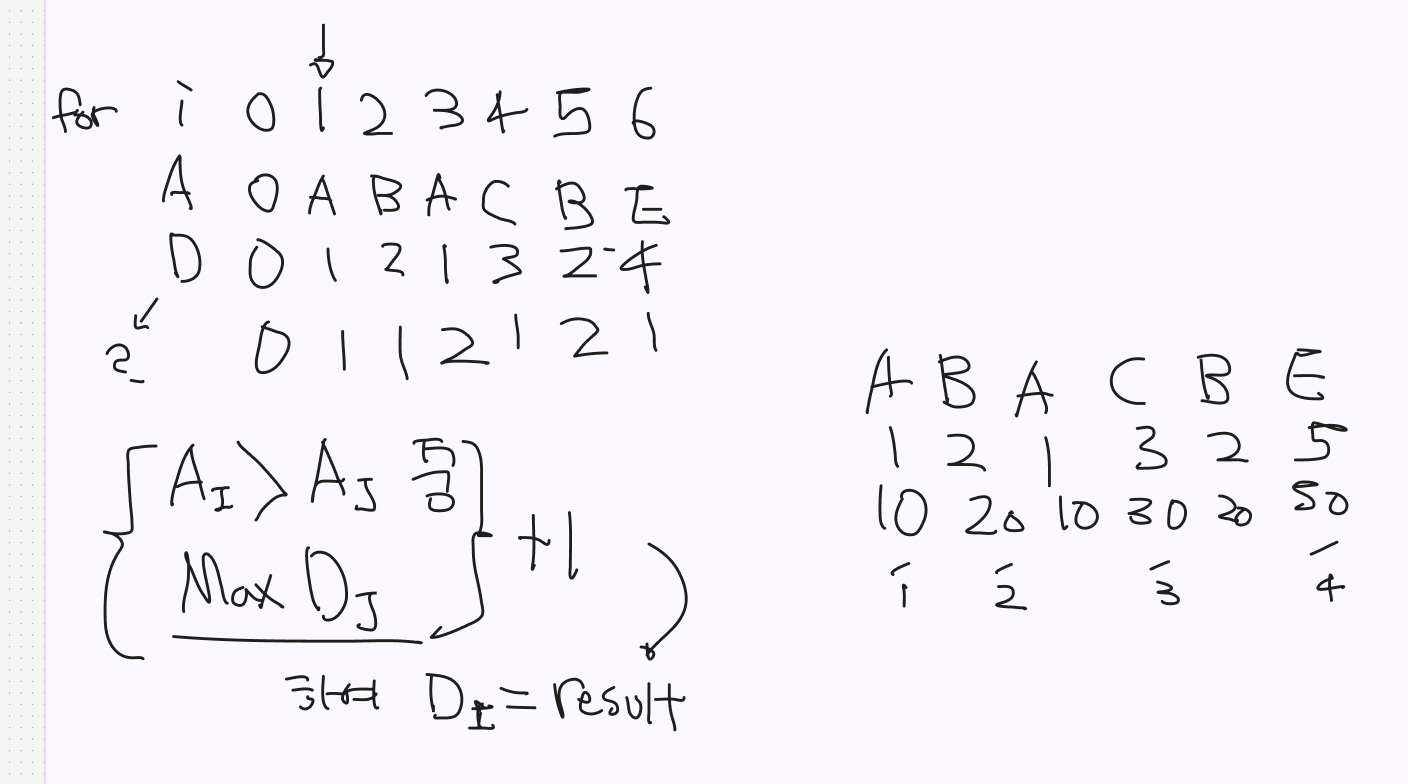 for i 0 1 2 3 4 5 6
A 0 A B A C B E
D 0 1 2 1 3 2 - 4
2 0 1 1 2 1 2 1
A B A C B E
1 2 1 3 2 5
10 20 10 30 20 50
1 2 3 4
{ A_I > A_J 중
Max D_J } +1
D_I = result